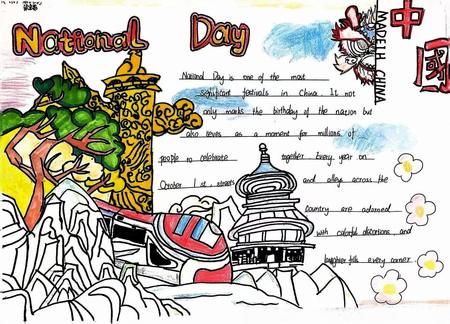 National Day
MADE IN CHINA
中
國
National Day is one of the most
significant festivals in China. It not
only marks the birthday of the nation but
also serves as a moment for millions of
people to celebrate together. Every year on
October 1st, streets and alleys across the
country are adorned
with colorful decorations, and
laughter fills every corner